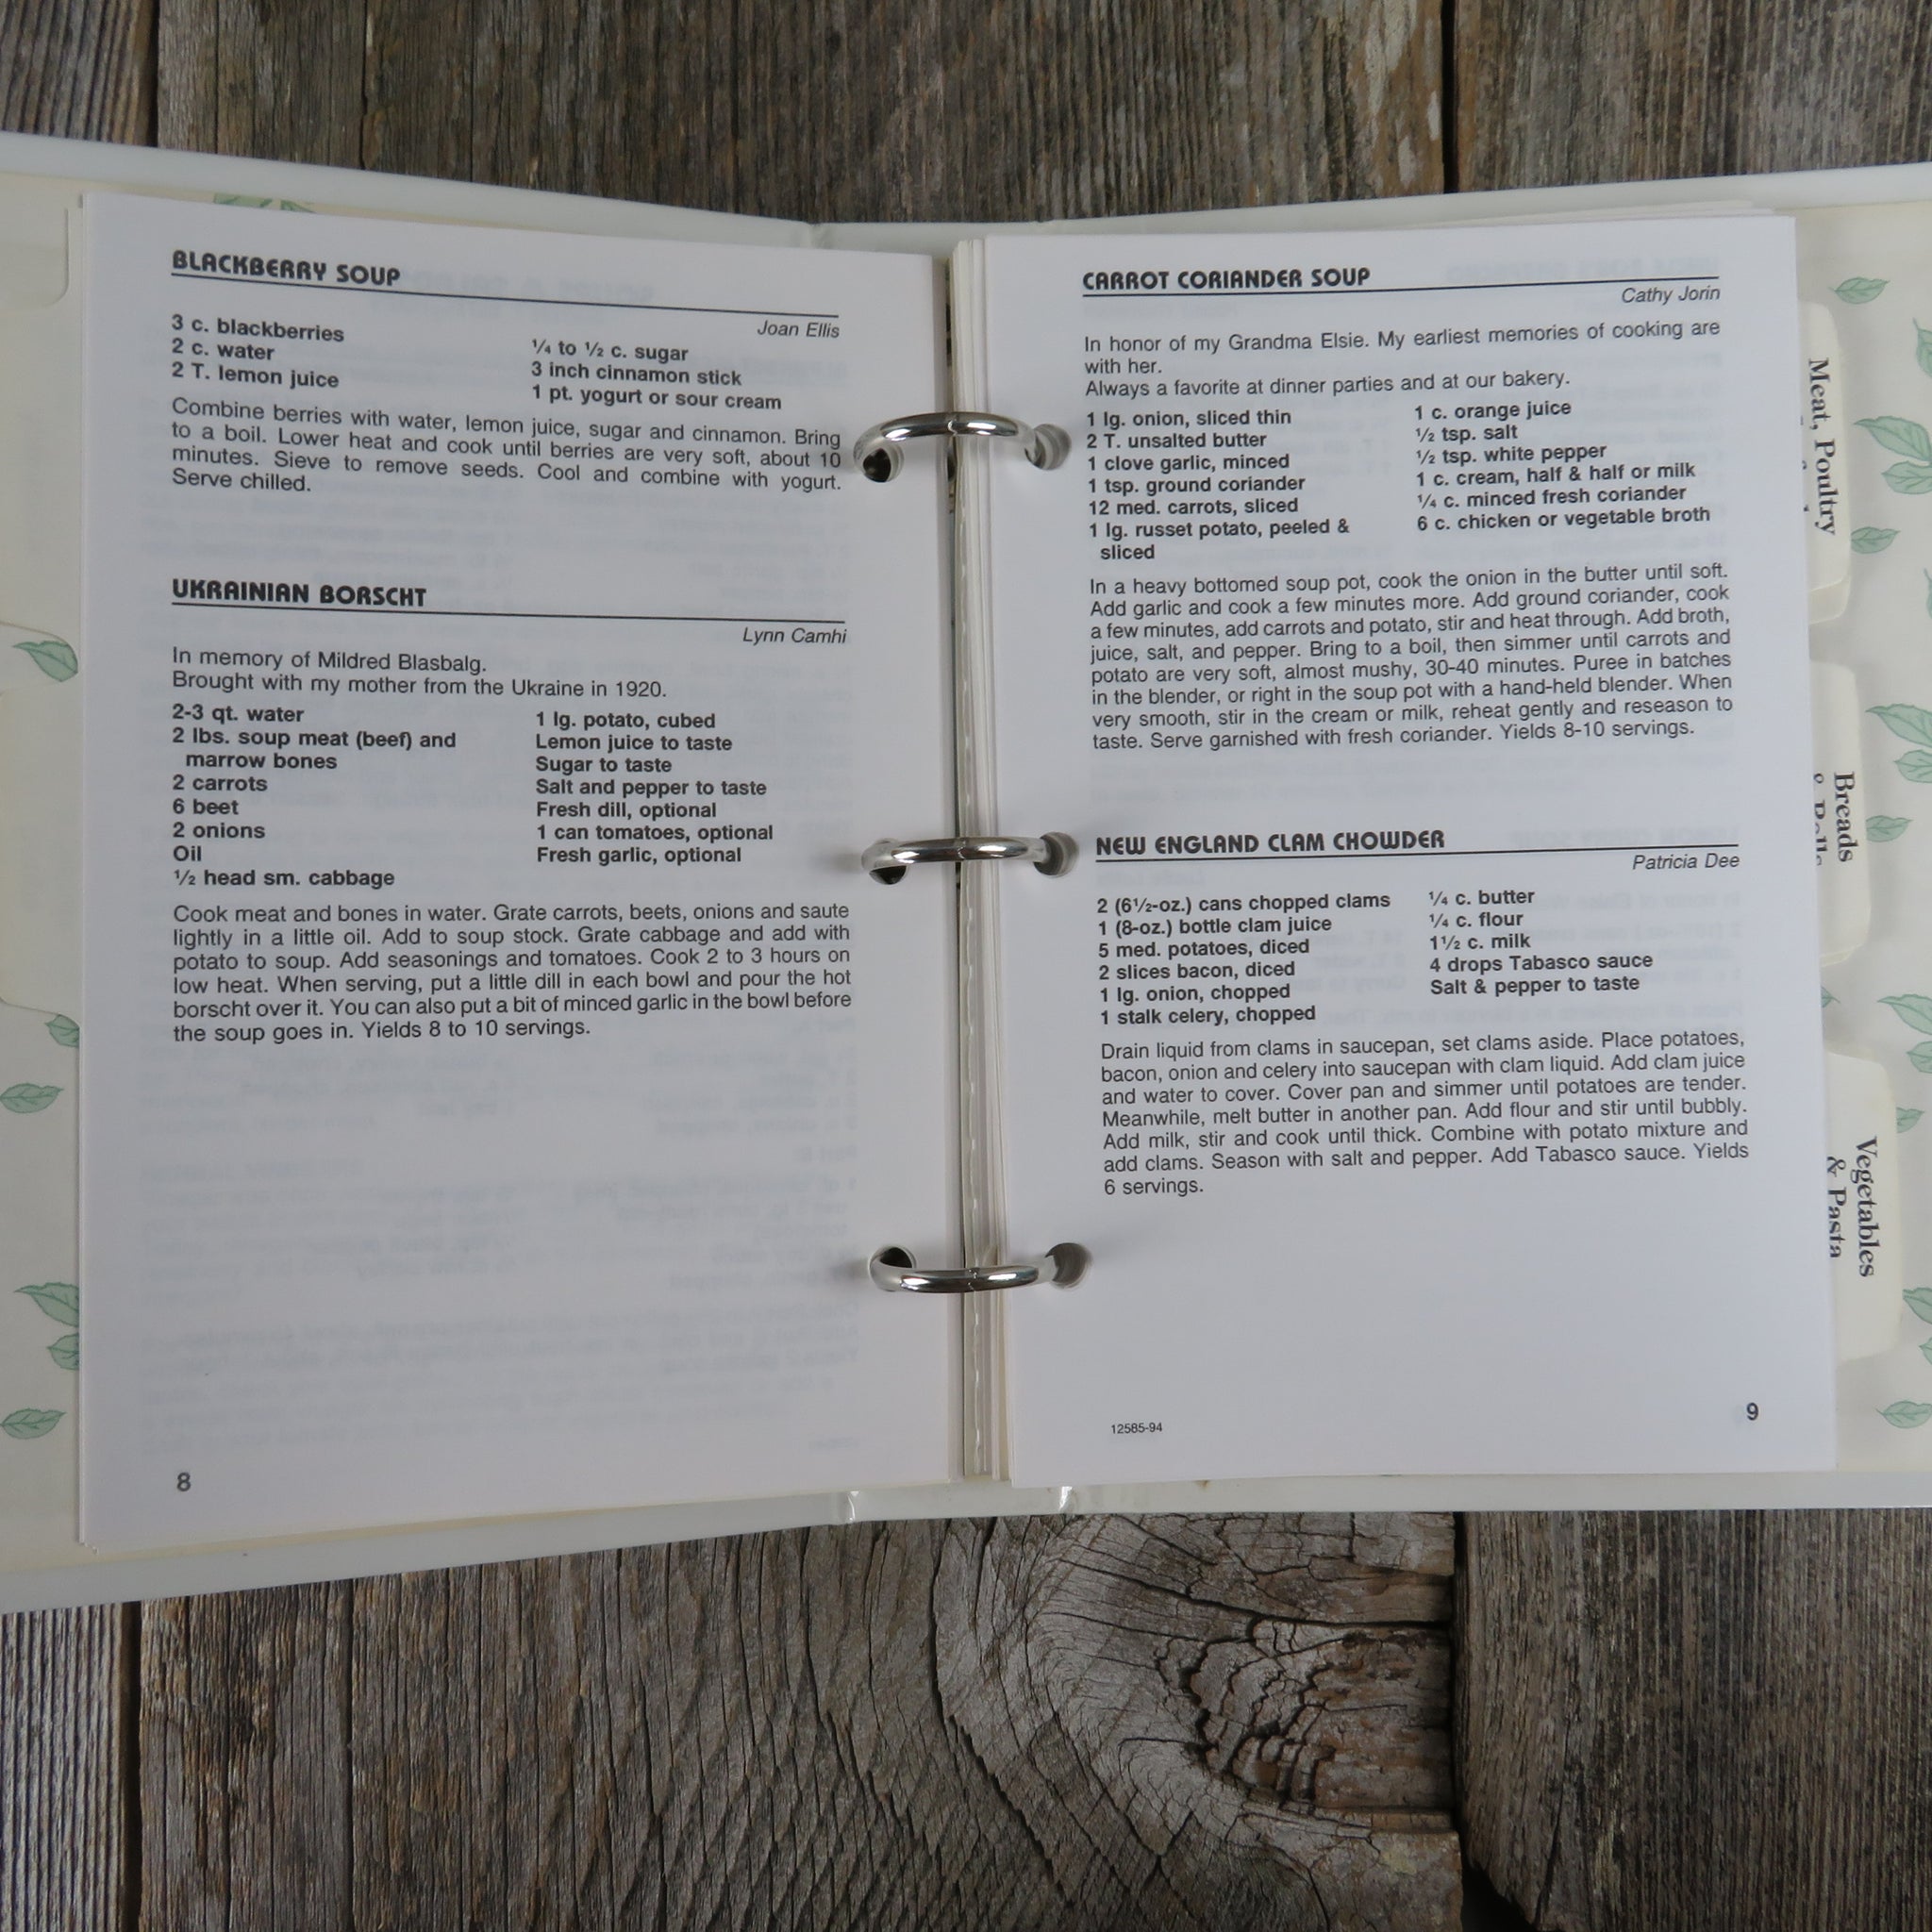 BLACKBERRY SOUP
Joan Ellis
3 c. blackberries
2 c. water
2 T. lemon juice
¼ to ½ c. sugar
3 inch cinnamon stick
1 pt. yogurt or sour cream
Combine berries with water, lemon juice, sugar and cinnamon. Bring
to a boil. Lower heat and cook until berries are very soft, about 10
minutes. Sieve to remove seeds. Cool and combine with yogurt.
Serve chilled.
UKRAINIAN BORSCHT
Lynn Camhi
In memory of Mildred Blasbalg.
Brought with my mother from the Ukraine in 1920.
2-3 qt. water
2 lbs. soup meat (beef) and
marrow bones
2 carrots
6 beet
2 onions
Oil
½ head sm. cabbage
1 lg. potato, cubed
Lemon juice to taste
Sugar to taste
Salt and pepper to taste
Fresh dill, optional
1 can tomatoes, optional
Fresh garlic, optional
Cook meat and bones in water. Grate carrots, beets, onions and saute
lightly in a little oil. Add to soup stock. Grate cabbage and add with
potato to soup. Add seasonings and tomatoes. Cook 2 to 3 hours on
low heat. When serving, put a little dill in each bowl and pour the hot
borscht over it. You can also put a bit of minced garlic in the bowl before
the soup goes in. Yields 8 to 10 servings.
8
CARROT CORIANDER SOUP
Cathy Jorin
In honor of my Grandma Elsie. My earliest memories of cooking are
with her.
Always a favorite at dinner parties and at our bakery.
1 lg. onion, sliced thin
2 T. unsalted butter
1 clove garlic, minced
1 tsp. ground coriander
12 med. carrots, sliced
1 lg. russet potato, peeled &
sliced
1 c. orange juice
½ tsp. salt
½ tsp. white pepper
1 c. cream, half & half or milk
¼ c. minced fresh coriander
6 c. chicken or vegetable broth
In a heavy bottomed soup pot, cook the onion in the butter until soft.
Add garlic and cook a few minutes more. Add ground coriander, cook
a few minutes, add carrots and potato, stir and heat through. Add broth,
juice, salt, and pepper. Bring to a boil, then simmer until carrots and
potato are very soft, almost mushy, 30-40 minutes. Puree in batches
in the blender, or right in the soup pot with a hand-held blender. When
very smooth, stir in the cream or milk, reheat gently and reseason to
taste. Serve garnished with fresh coriander. Yields 8-10 servings.
NEW ENGLAND CLAM CHOWDER
Patricia Dee
2 (6½-oz.) cans chopped clams
1 (8-oz.) bottle clam juice
5 med. potatoes, diced
2 slices bacon, diced
1 lg. onion, chopped
1 stalk celery, chopped
¼ c. butter
¼ c. flour
1½ c. milk
4 drops Tabasco sauce
Salt & pepper to taste
Drain liquid from clams in saucepan, set clams aside. Place potatoes,
bacon, onion and celery into saucepan with clam liquid. Add clam juice
and water to cover. Cover pan and simmer until potatoes are tender.
Meanwhile, melt butter in another pan. Add flour and stir until bubbly.
Add milk, stir and cook until thick. Combine with potato mixture and
add clams. Season with salt and pepper. Add Tabasco sauce. Yields
6 servings.
12585-94
9
Meat, Poultry
Breads
& Rolls
Vegetables
& Pasta